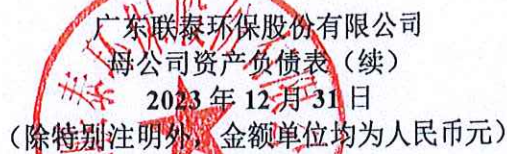 广东联泰环保股份有限公司
母公司资产负债表（续）
2023 年 12 月 31 日
（除特别注明外，金额单位均为人民币元）